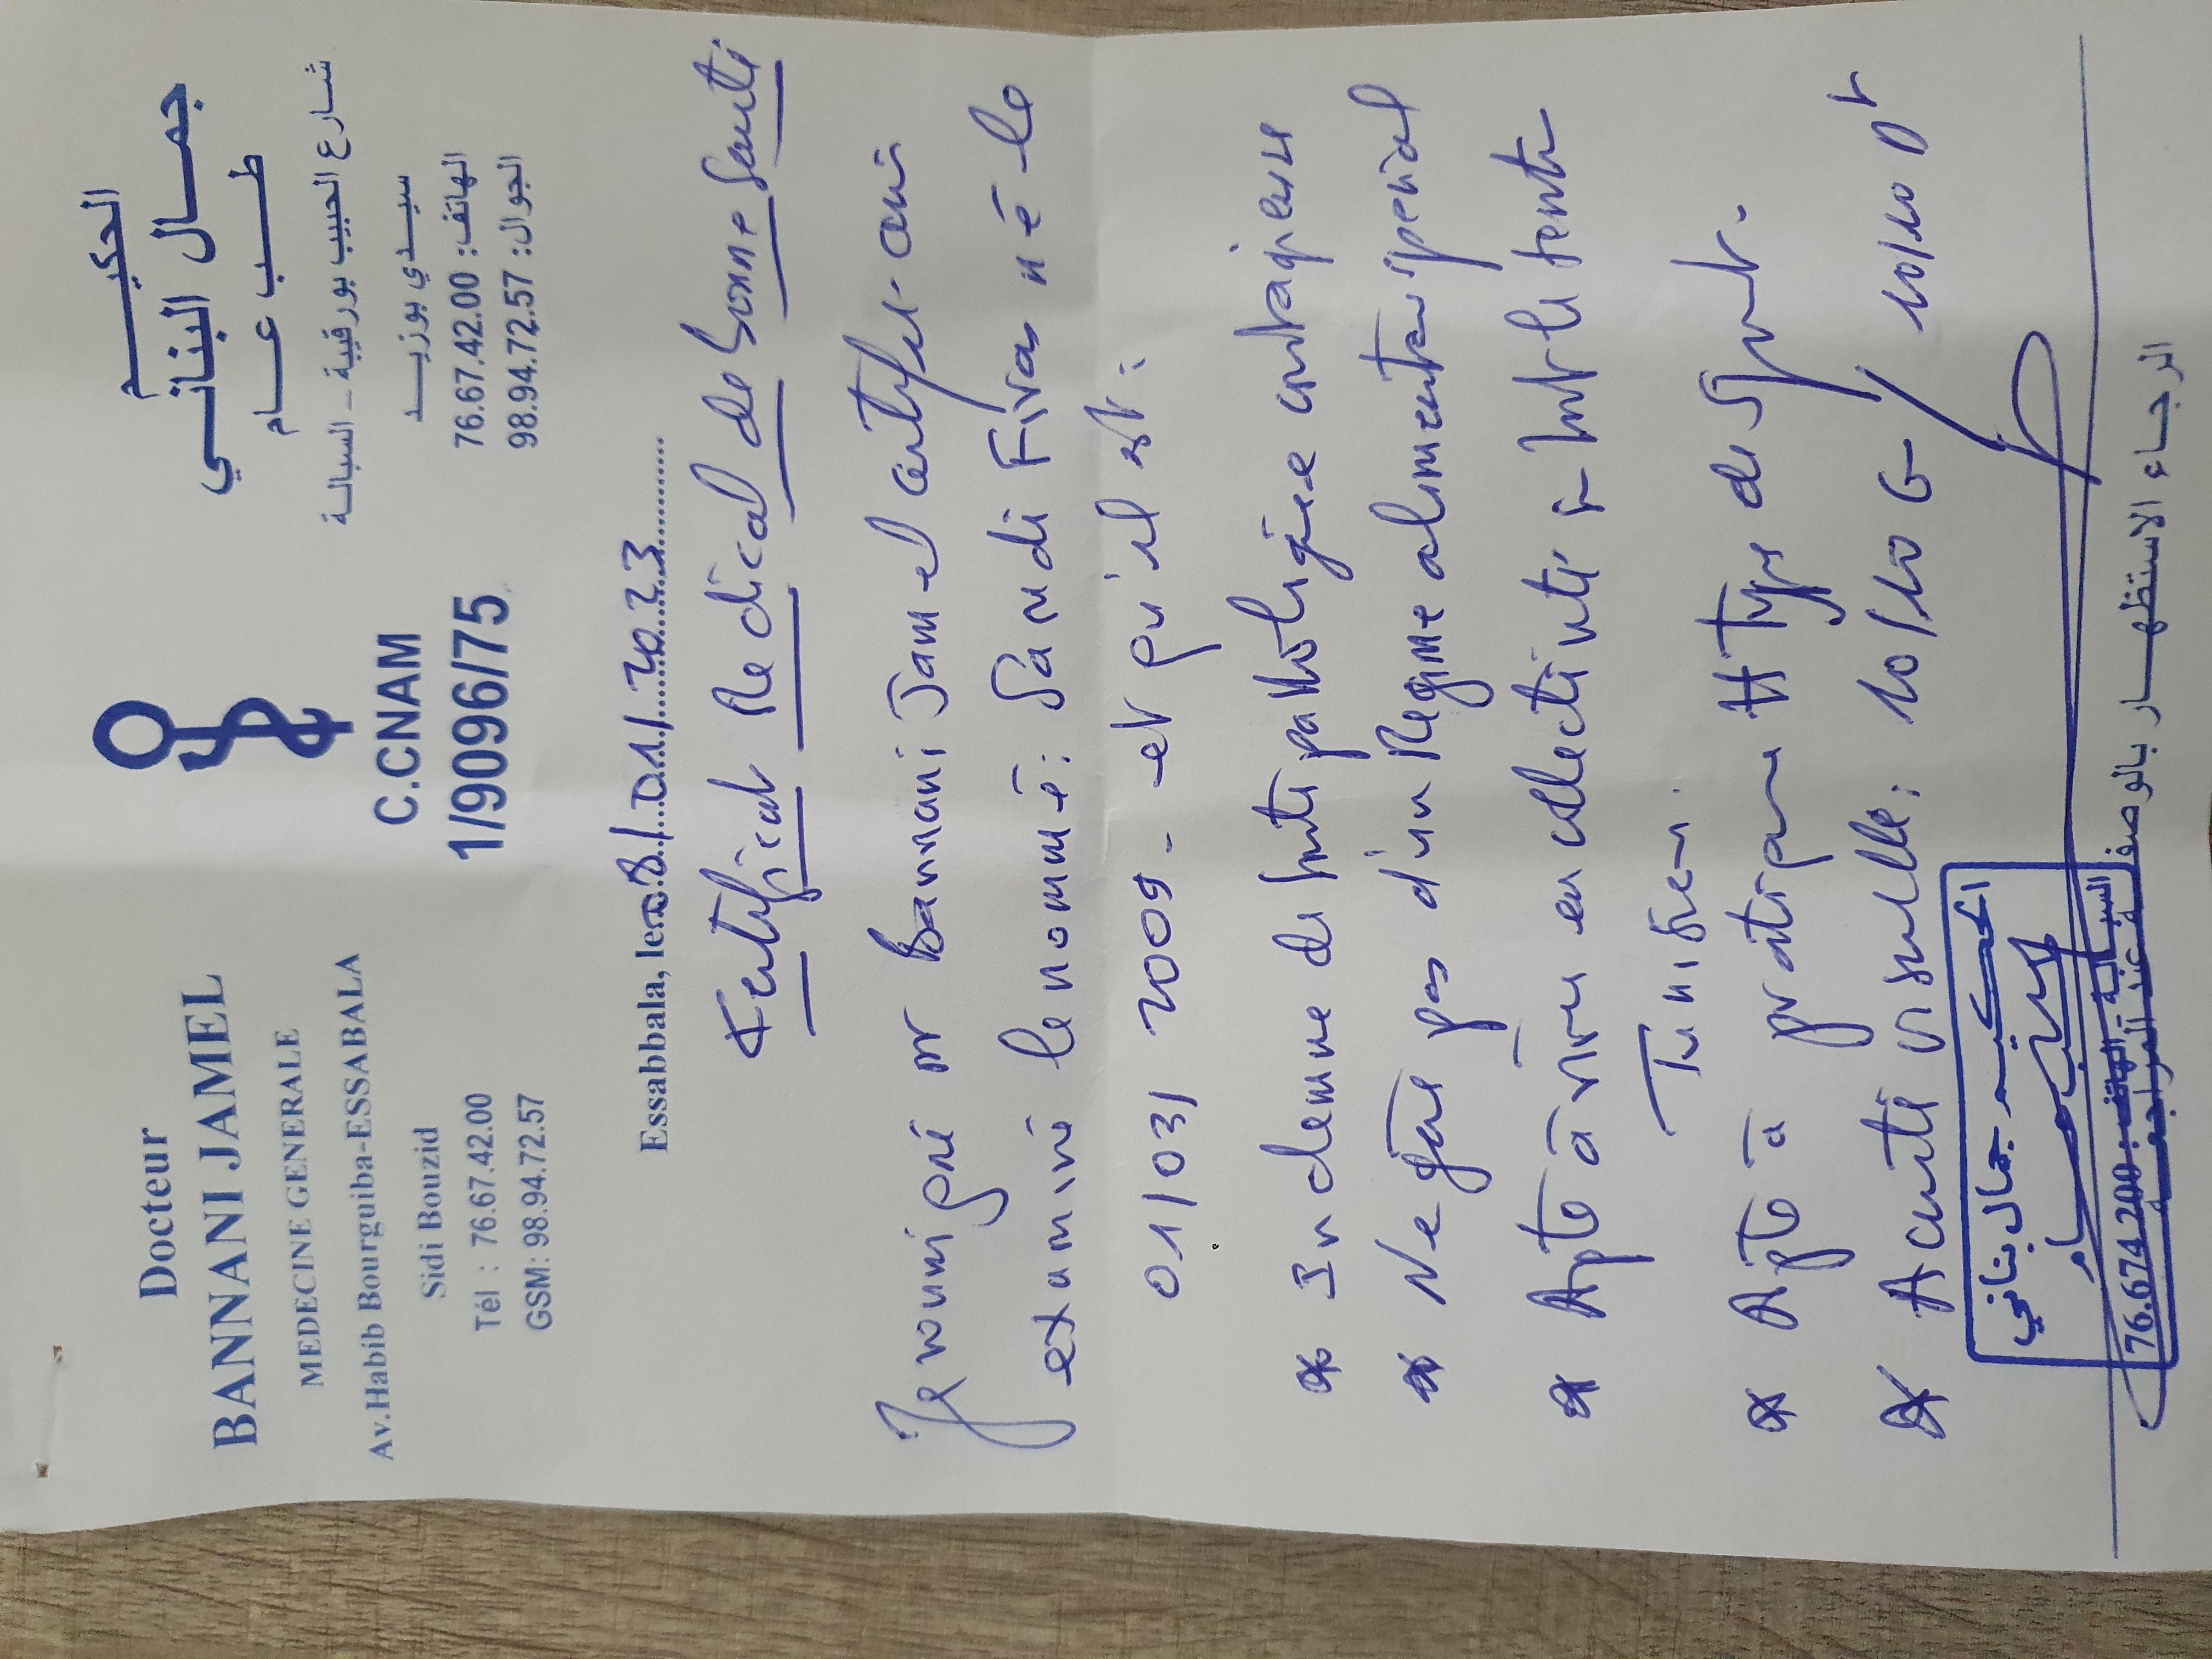 Docteur
BANNANI JAMEL
MEDECINE GENERALE
Av.Habib Bourguiba-ESSABALA
Sidi Bouzid
Tél : 76.67.42.00
GSM: 98.94.72.57
C.CNAM
1/9096/75
الحكيــــــم
جمــال البنانــي
طــب عــام
شارع الحبيب بورقيبة - السبالة
سيــدي بوزيــد
الهاتف: 76.67.42.00
الجوال: 98.94.72.57
Essabbala, le 08/01/2023
Certificat Medical de bonne Santé
Je soussigné Dr Bannani Jamel certifie avoir
examiné le nommé: Firas né le
01/03/2009 - et qu'il est:
* Indemne de toute pathologie contagieuse
* Ne gère pas d'un Régime alimentaire spécial
* Apte à vivre en collectivité
* Apte à pratiquer tt Type de Sport.
* Acuité visuelle: 10/10 G / 10/10 Dt
الحكيـم جمال بناني
طب عــام
السبالة - الهاتف: 76.674.200
الرجــاء الاستظهــار بالوصفــة عند المراجعــة